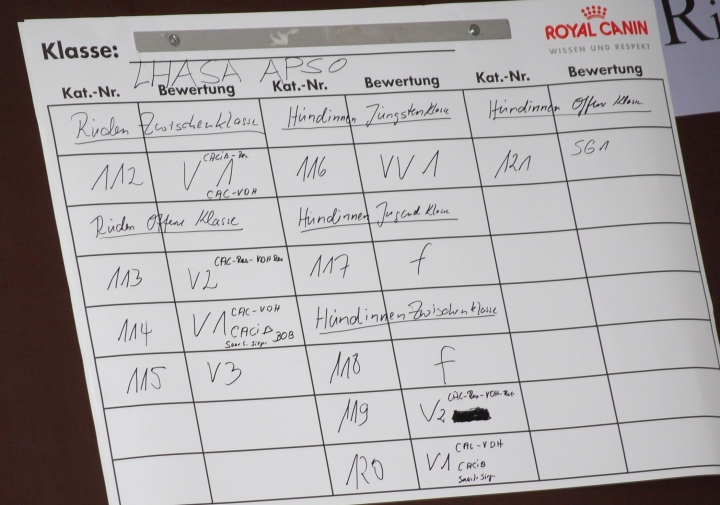 ROYAL CANIN
WISSEN UND RESPEKT
Klasse: LHASA APSO
Kat.-Nr. Bewertung Kat.-Nr. Bewertung Kat.-Nr. Bewertung
Rüden Zwischenklasse
112 V1 CACiB-Res CAC-VDH
Rüden Offene Klasse
113 V2 CAC-Res-VDH Res
114 V1 CAC-VDH CACiB BOB
115 V3
Hündinnen Jüngstenklasse
116 VV1
Hündinnen Jugend Klasse
117 f
Hündinnen Zwischenklasse
118 f
119 V2 CAC-Res-VDH-Res
120 V1 CAC-VDH CACiB
Hündinnen Offene Klasse
121 SG1
Ri